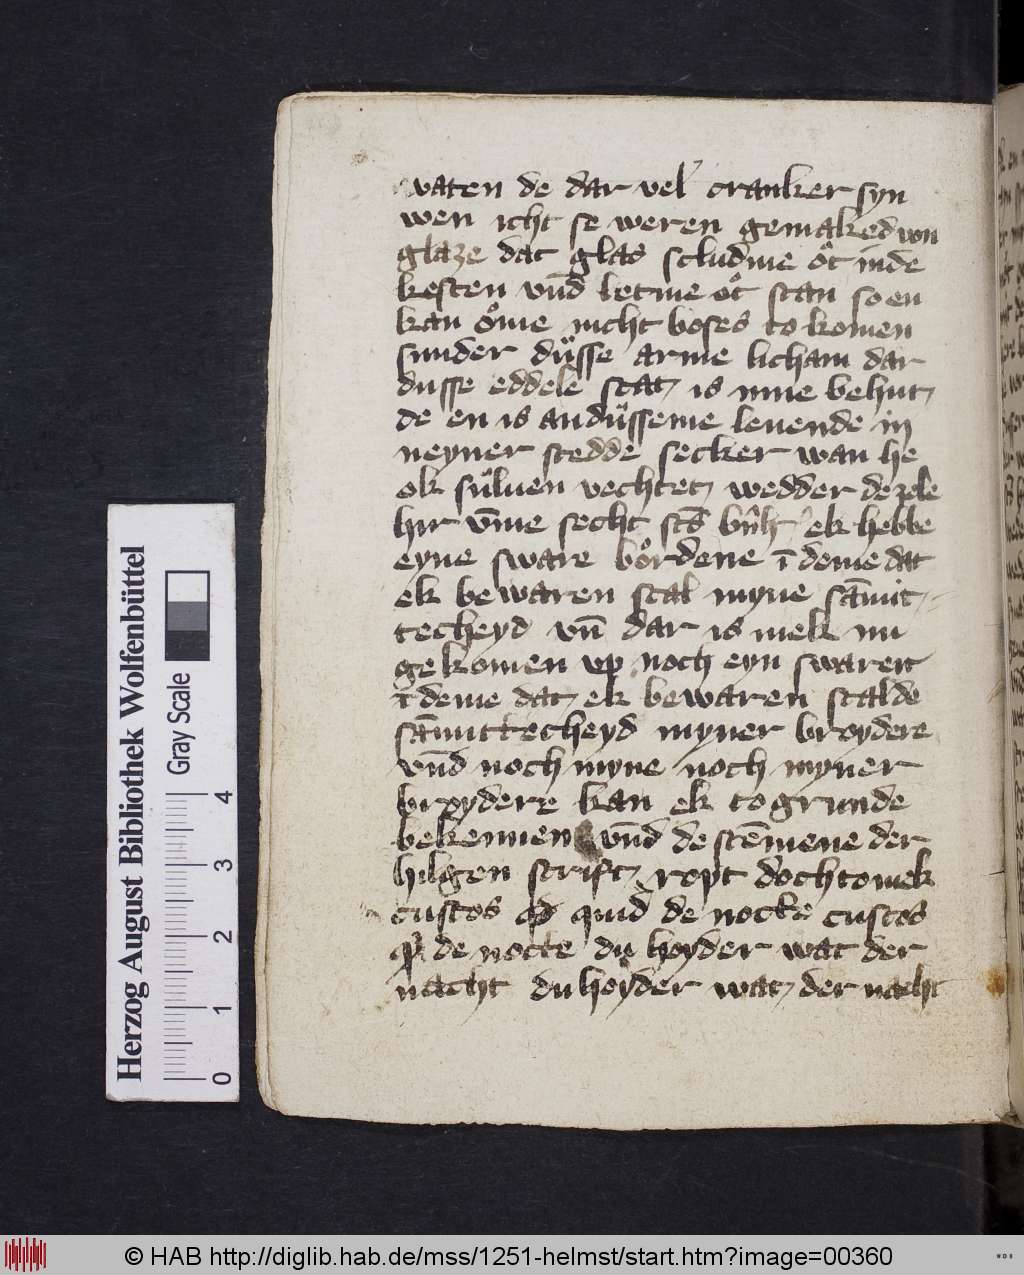 vaten de dar vel cranker syn
wen icht se weren gemaked von
glaze dat glas scludme ot in de
kesten vnd letme ot stan so en
kan ome nicht boses to komen
sunder dusse arme licham dar
dusse eddele scat is inne behut
de en is an dusseme leuende in
neyner stedde secker wan he
ok suluen vechtet wedder de zele
hir vme secht scs bnh ek hebbe
eyne sware bordene i deme dat
ek bewaren scal myne samit
techeyd vn dar is mek nu
gekomen vp noch eyn swarer
i deme dat ek bewaren scal de
samittecheyd myner broydere
vnd noch myne noch myner
broydere kan ek to grunde
bekennen vnd de stemene der
hilgen scrift ropt doch to mek
custos quid de nocte custos
de nocte du hoyder wat der
nacht du hoyder wat der nacht
Herzog August Bibliothek Wolfenbüttel
Gray Scale
0 1 2 3 4
© HAB http://diglib.hab.de/mss/1251-helmst/start.htm?image=00360